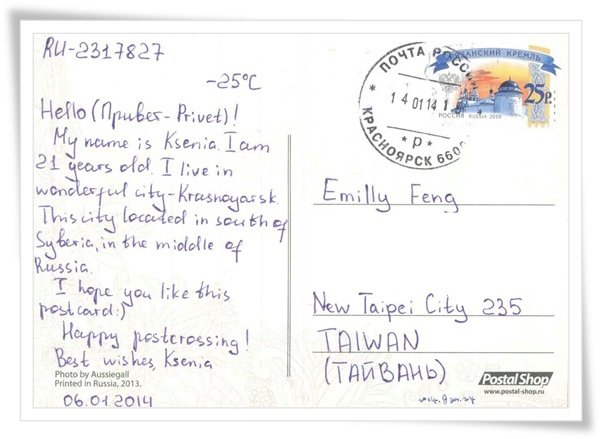 RU-2317827
-25°C
Hello (Привет-Privet)!
My name is Ksenia. I am
21 years old. I live in
wonderful city-Krasnoyarsk.
This city located in south of
Syberia, in the middle of
Russia.
I hope you like this
postcard:)
Happy postcrossing!
Best wishes, Ksenia
Photo by Aussiegall
Printed in Russia, 2013.
06.01.2014
ПОЧТА РОССИИ
14 01 14 1
КРАСНОЯРСК 6600
р
РЯЗАНСКИЙ КРЕМЛЬ
25р.
РОССИЯ RUSSIA 2009
Emilly Feng
New Taipei City 235
TAIWAN
(ТАЙВАНЬ)
Postal Shop
www.postal-shop.ru